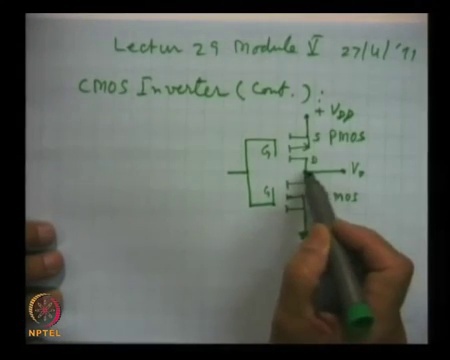 Lectur 29 Module V 27/4/'11
CMOS Inverter (Cont.) :
+ VDD
S PMOS
G
D
Vo
G
MOS
NPTEL